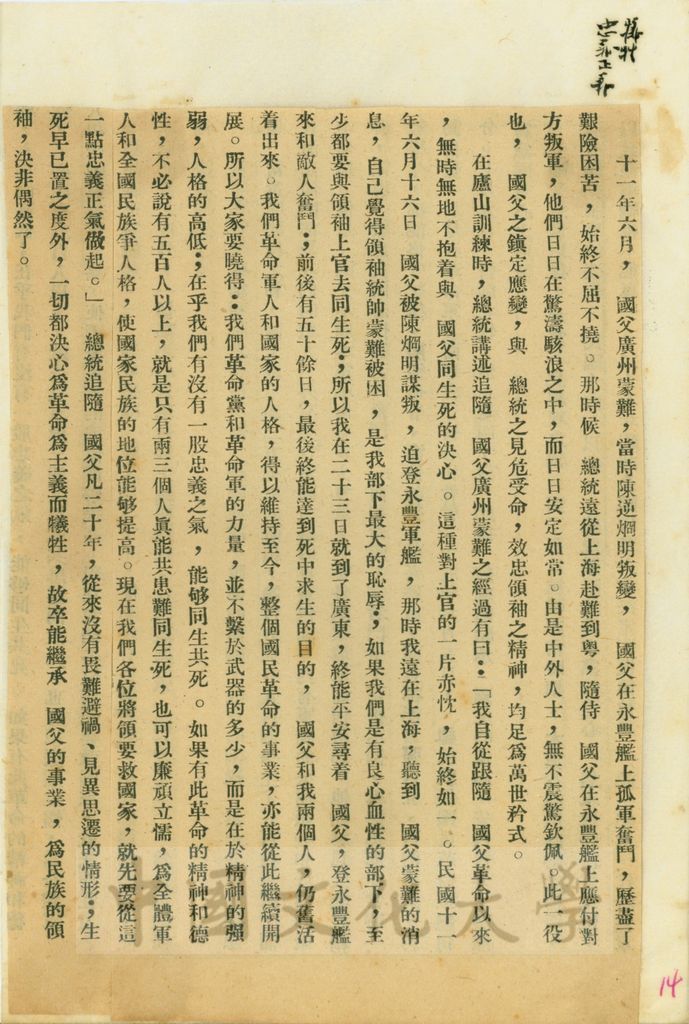 忠義正氣
十一年六月，　國父廣州蒙難，當時陳逆烱明叛變，　國父在永豐艦上孤軍奮鬥，歷盡了
艱險困苦，始終不屈不撓。那時候　總統遠從上海赴難到粵，隨侍　國父在永豐艦上應付對
方叛軍，他們日日在驚濤駭浪之中，而日日安定如常。由是中外人士，無不震驚欽佩。此一役
也，　國父之鎮定應變，與　總統之見危受命，效忠領袖之精神，均足爲萬世矜式。
在廬山訓練時，總統講述追隨　國父廣州蒙難之經過有曰：「我自從跟隨　國父革命以來
，無時無地不抱着與　國父同生死的決心。這種對上官的一片赤忱，始終如一。民國十一
年六月十六日　國父被陳烱明謀叛，迫登永豐軍艦，那時我遠在上海，聽到　國父蒙難的消
息，自己覺得領袖統帥蒙難被困，是我部下最大的恥辱；如果我們是有良心血性的部下，至
少都要與領袖上官去同生死；所以我在二十三日就到了廣東，終能平安尋着　國父，登永豐艦
來和敵人奮鬥；前後有五十餘日，最後終能達到死中求生的目的，　國父和我兩個人，仍舊活
着出來。我們革命軍人和國家的人格，得以維持至今，整個國民革命的事業，亦能從此繼續開
展。所以大家要曉得：我們革命黨和革命軍的力量，並不繫於武器的多少，而是在於精神的强
弱，人格的高低；在乎我們有沒有一股忠義之氣，能够同生共死。如果有此革命的精神和德
性，不必說有五百人以上，就是只有兩三個人眞能共患難同生死，也可以廉頑立懦，爲全體軍
人和全國民族爭人格，使國家民族的地位能够提高。現在我們各位將領要救國家，就先要從這
一點忠義正氣做起。」　總統追隨　國父凡二十年，從來沒有畏難避禍、見異思遷的情形；生
死早已置之度外，一切都決心爲革命爲主義而犧牲，故卒能繼承　國父的事業，爲民族的領
袖，決非偶然了。
14
中國文化大學